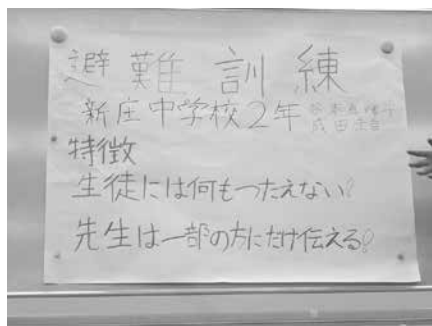 避難訓練
新庄中学校2年
成田
特徴
生徒には何もつたえない?
先生は一部の方にだけ伝える?